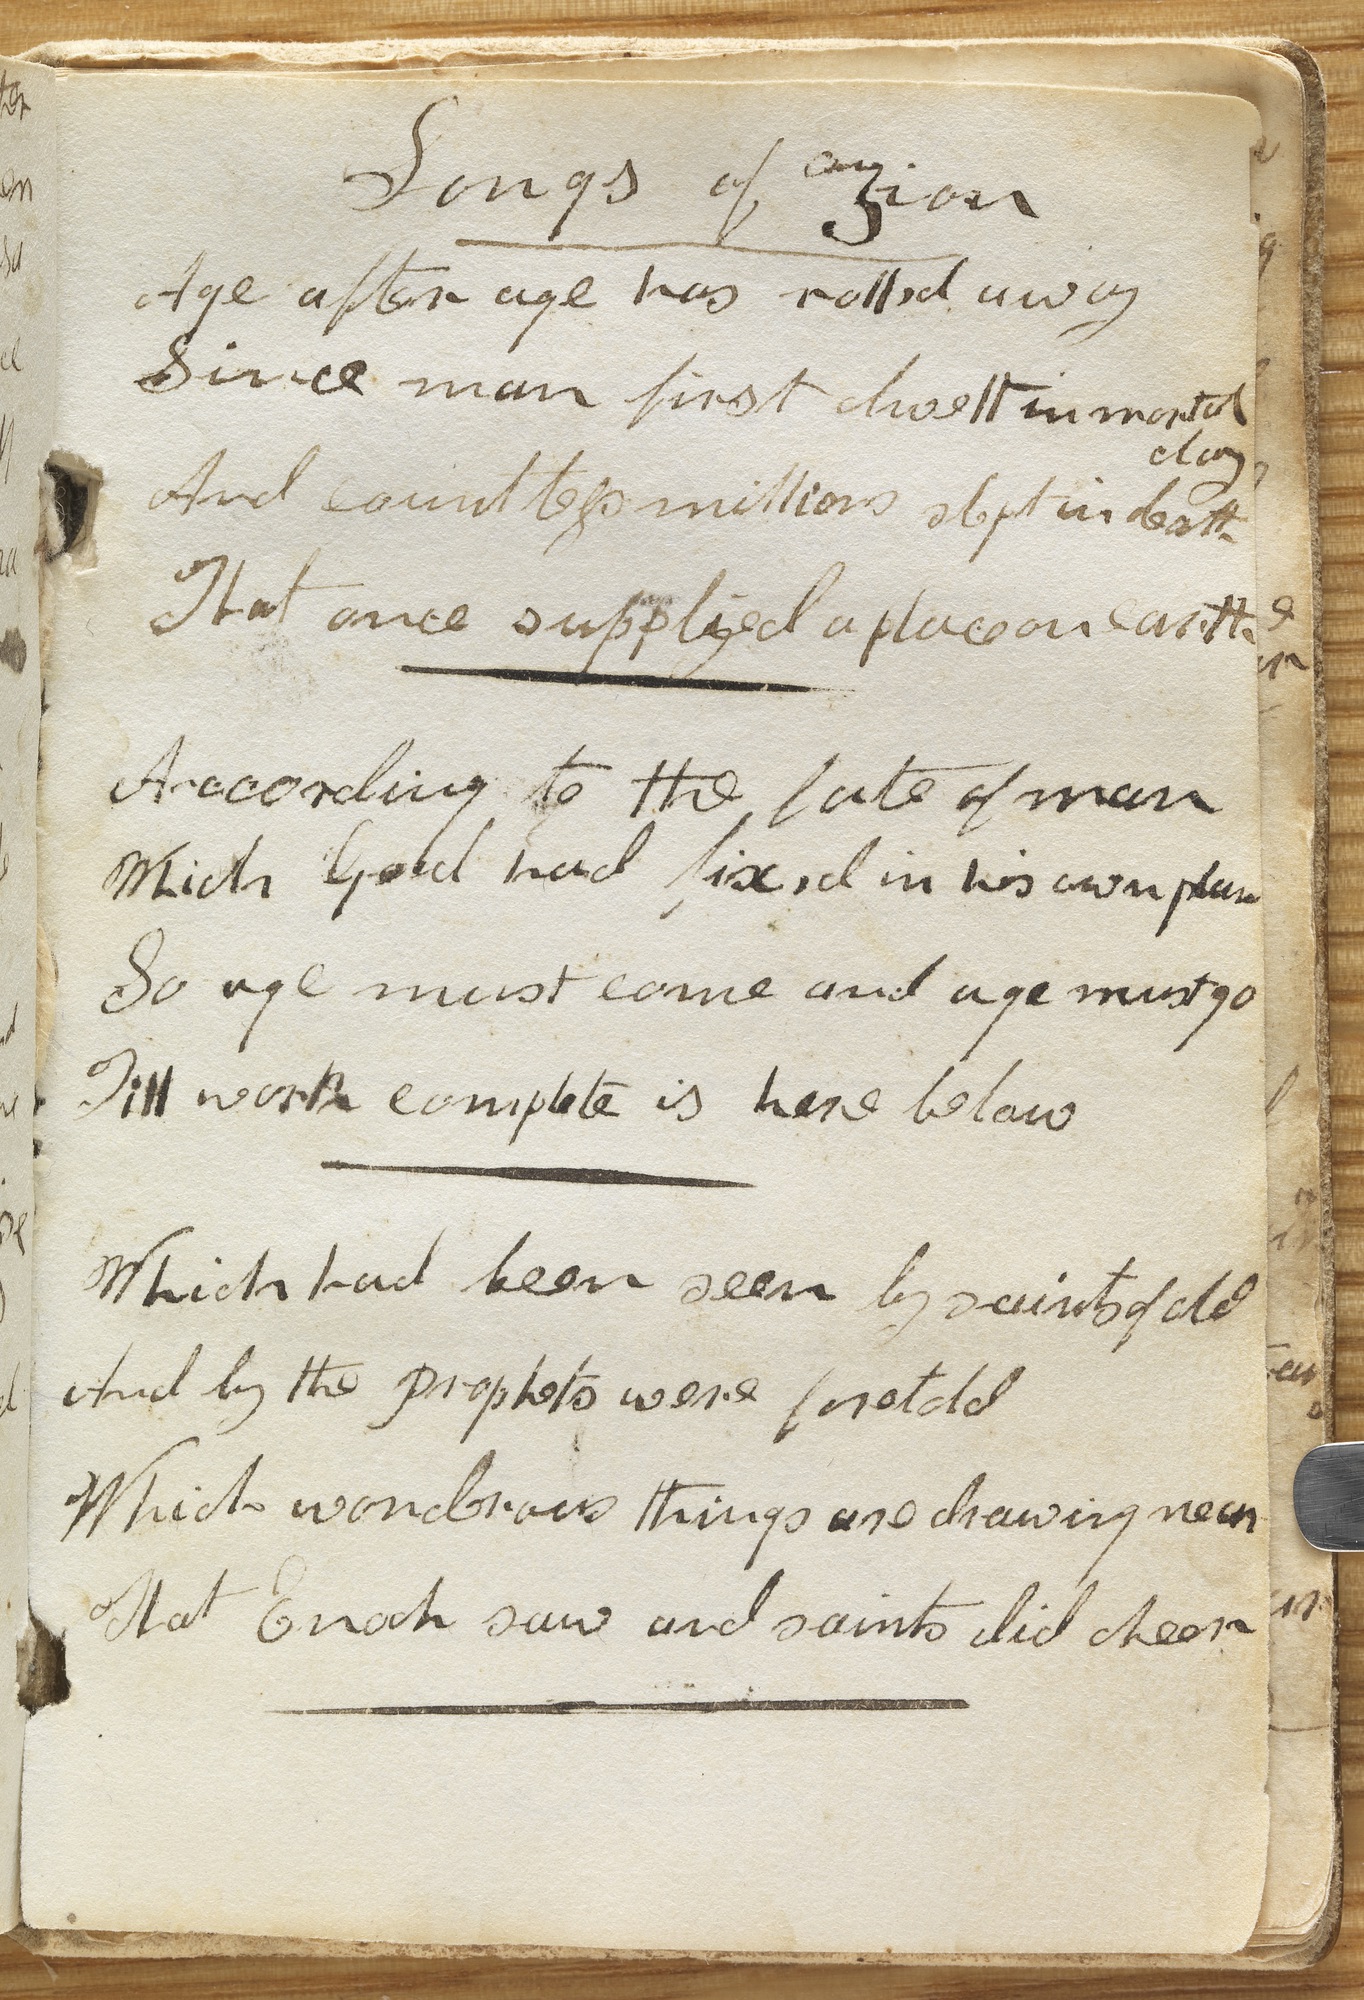 Songs of Zion
Age after age has rolled away
Since man first dwelt in mortal
clay
And countless millions slept in death
That once supplyed a place on earth
Arccording to the fate of man
Which God had fixed in his own plan
So age must come and age must go
Till work complete is here below
Which had been seen by saints of old
And by the prophets were foretold
Which wonderous things are drawing near
That Enoch saw and saints did cheer